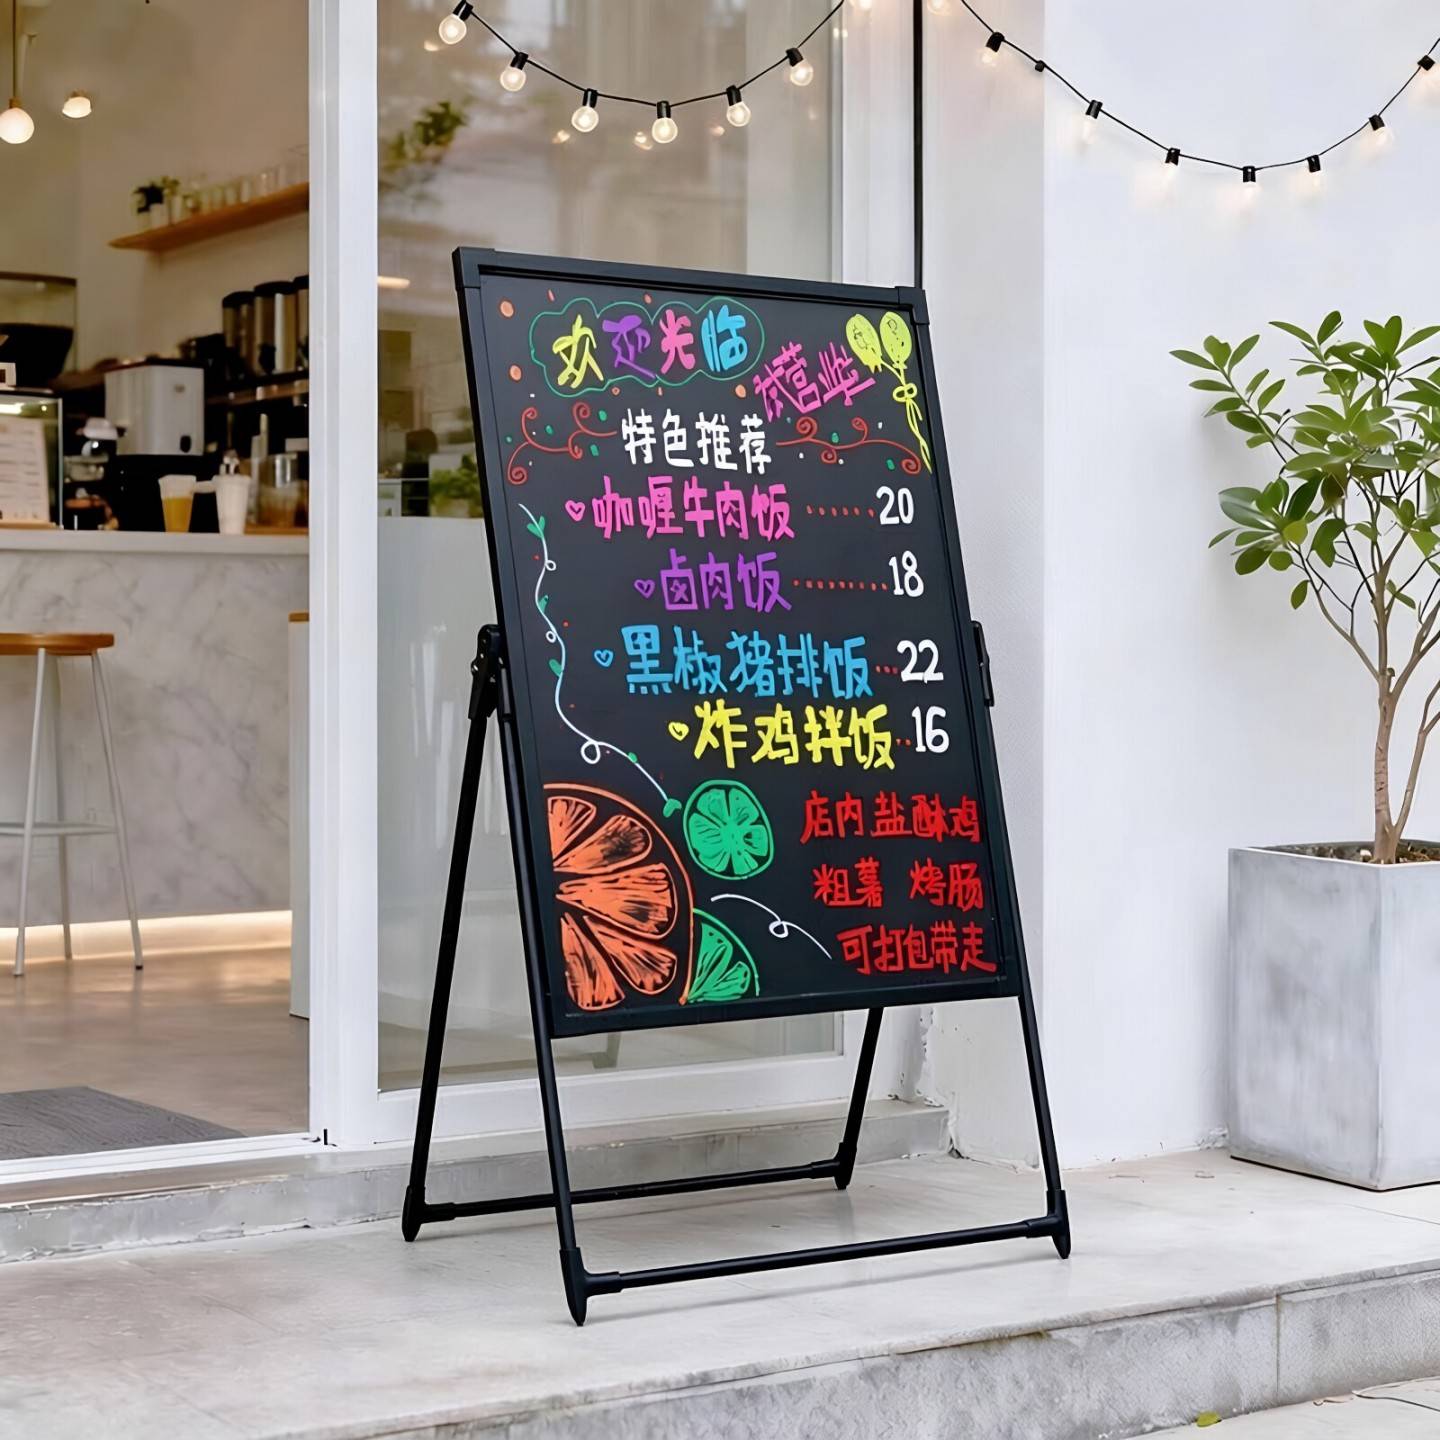 欢迎光临
试营业
特色推荐
咖喱牛肉饭······20
卤肉饭········18
黑椒猪排饭···22
炸鸡拌饭··16
店内盐酥鸡
粗薯 烤肠
可打包带走